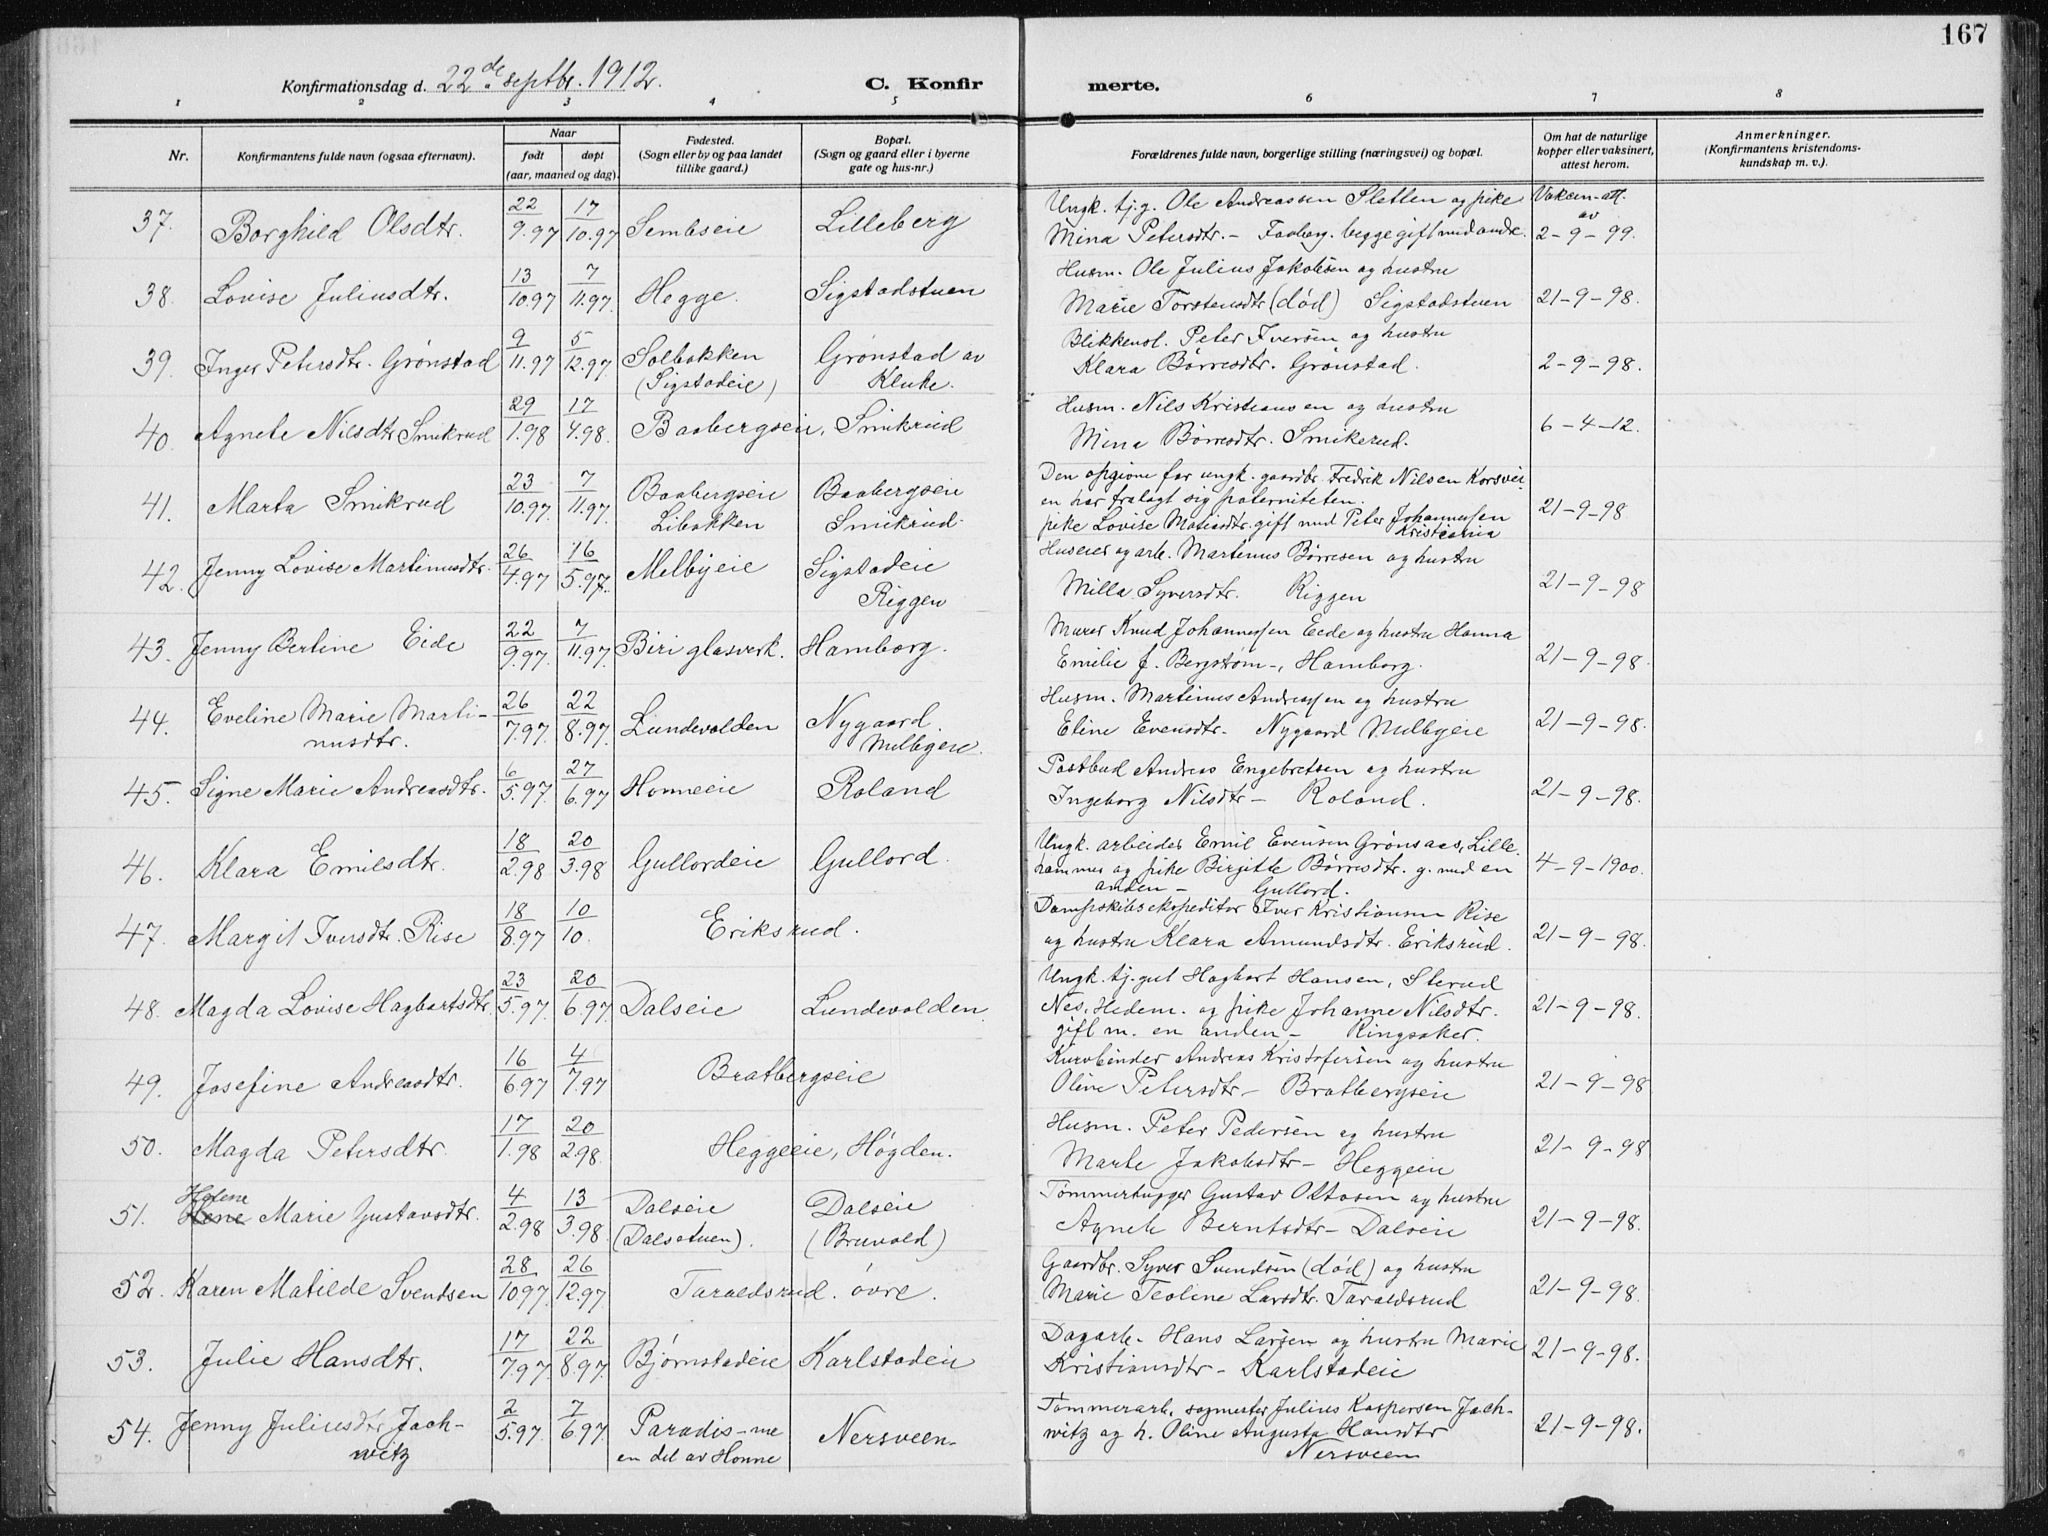 167
Konfirmationsdag d. 22de septbr. 1912. C. Konfirmerte.
1 2 3 4 5 6 7 8
Nr. Konfirmantens fulde navn (ogsaa efternavn). Naar født døpt (aar, maaned og dag). Fødested. (Sogn eller by og paa landet tillike gaard.) Bopæl. (Sogn og gaard eller i byerne gate og hus-nr.) Forældrenes fulde navn, borgerlige stilling (næringsvei) og bopæl. Om hat de naturlige kopper eller vaksinert, attest herom. Anmerkninger. (Konfirmantens kristendomskundskap m. v.).
37. Borghild Olsdtr. 22/9.97 17/10.97 Sembseie Lilleberg Ungk. tj.g. Ole Andreassen Sletten og pike Vaksin-att. av
Mina Petersdtr. - Faaberg. begge gift med andre. 2-9-99.
38. Lovise Juliusdtr. 13/10.97 7/11.97 Hegge. Sigstadstuen Husm. Ole Julius Jakobsen og hustru
Marie Torstensdtr (død) Sigstadstuen 21-9-98.
39. Inger Petersdtr. Grønstad 9/11.97 5/12.97 Solbakken (Sigstadeie) Grønstad av Kluke. Blikkensl. Peter Iversen og hustru
Klara Børresdtr. Grønstad. 2-9-98.
40. Agnete Nilsdtr Smikrud 29/1.98 17/4.98. Baabergseie, Smikrud Husm. Nils Kristiansen og hustru
Mina Børresdtr. Smikerud. 6-4-12.
41. Marta Smikrud 23/10.97 7/11.97. Baabergseie Libakken Baabergseie Smikrud. Den opgivne far ungk. gaardbr. Fredrik Nilsen Korsvei-
en har fralagt sig paterniteten.
pike Lovise Matiasdtr. gift med Peter Johannessen Kristiania 21-9-98
42. Jenny Lovise Martinusdtr. 26/4.97 16/5.97. Melbyeie Sigstadeie Riggen Huseier og arb. Martinus Børresen og hustru
Milla Syversdtr. Riggen 21-9-98
43. Jenny Bertine Eide 22/9.97. 7/11.97. Biri glasverk. Hamborg. Murer Knud Johannessen Eede og hustru Hanna
Emilie f. Bergstøm -, Hamborg. 21-9-98.
44. Eveline Marie Marti-
nusdtr. 26/7.97. 22/8.97. Lundevolden Nygaard Melbyeie. Husm. Martinus Andreassen og hustru
Eline Evensdtr. Nygaard Melbyeie 21-9-98.
45. Signe Marie Andreasdtr. 6/5.97. 27/6.97 Honneeie Roland Postbud Andreas Engebretsen og hustru
Ingeborg Nilsdtr - Roland. 21-9-98.
46. Klara Emilsdtr. 18/2.98 20/3.98 Gullordeie Gullord. Ungk. arbeider Emil Evensen Grønaas, Lille-
hammer og pike Birgitte Børresdtr. g. med en
anden - Gullord. 4-9-1900.
47. Margit Iversdtr. Rise 18/8.97 10/10. Eriksrud. Dampskibsekspeditør Iver Kristiansen Rise
og hustru Klara Amundsdtr. Eriksrud. 21-9-98.
48. Magda Lovise Hagbartsdtr. 23/5.97. 20/6.97. Dalseie Lundevolden. Ungk. tj.gut Hagbart Hansen, Sterud
Nes, Hedem. og pike Johanne Nilsdtr.
gift m. en anden - Ringsaker. 21-9-98.
49. Josefine Andreasdtr. 16/6.97 4/7.97 Bratbergseie Kurvbinder Andreas Kristofersen og hustru
Oline Petersdtr - Bratbergseie 21-9-98
50. Magda Petersdtr. 17/1.98 20/2.98. Heggeeie, Høgden. Husm. Peter Pedersen og hustru
Marte Jakobsdtr - Heggeeie 21-9-98
51. Helene Marie Gustavsdtr. 4/2.98 13/3.98. Dalseie (Dalsstuen). Dalseie (Bruvold) Tømmerhugger Gustav Ottosen og hustru
Agnete Berntsdtr - Dalseie 21-9-98.
52. Karen Matilde Svendsen 28/10.97. 26/12.97. Taraldsrud. øvre. Gaardbr. Syver Svendsen (død) og hustru
Marie Teoline Larsdtr. Taraldsrud 21-9-98.
53. Julie Hansdtr. 17/7.97. 22/8.97. Bjørnstadeie Karlstadeie Dagarb. Hans Larsen og hustru Marie
Kristiansdtr - Karlstadeie 21-9-98.
54. Jenny Juliusdtr Jach-
witz 2/5.97. 7/6.97. Paradis - en del av Honne Nersveen - Tømmerarb. sagmester Julius Kaspersen Jach-
witz og h. Oline Augusta Hansdtr
Nersveen 21-9-98.